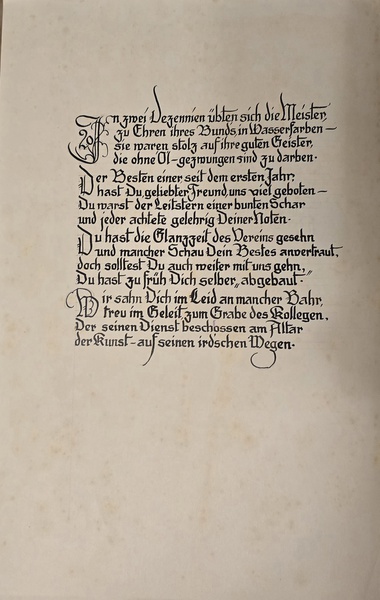 In zwei Dezennien übten sich die Meister,
zu Ehren ihres Bunds, in Wasserfarben —
sie waren stolz auf ihre guten Geister,
die ohne Öl - gezwungen sind zu darben.
Der Besten einer seit dem ersten Jahr,
hast Du, geliebter Freund, uns viel geboten —
Du warst der Leitstern einer bunten Schar
und jeder achtete gelehrig Deiner Noten.
Du hast die Glanzzeit des Vereins gesehn
und mancher Schau Dein Bestes anvertraut,
doch solltest Du auch weiter mit uns gehn,
Du hast zu früh Dich selber „abgebaut."
Wir sahn Dich im Leid an mancher Bahr,
treu im Geleit zum Grabe des Kollegen,
Der seinen Dienst beschossen am Altar
der Kunst - auf seinen irdschen Wegen.